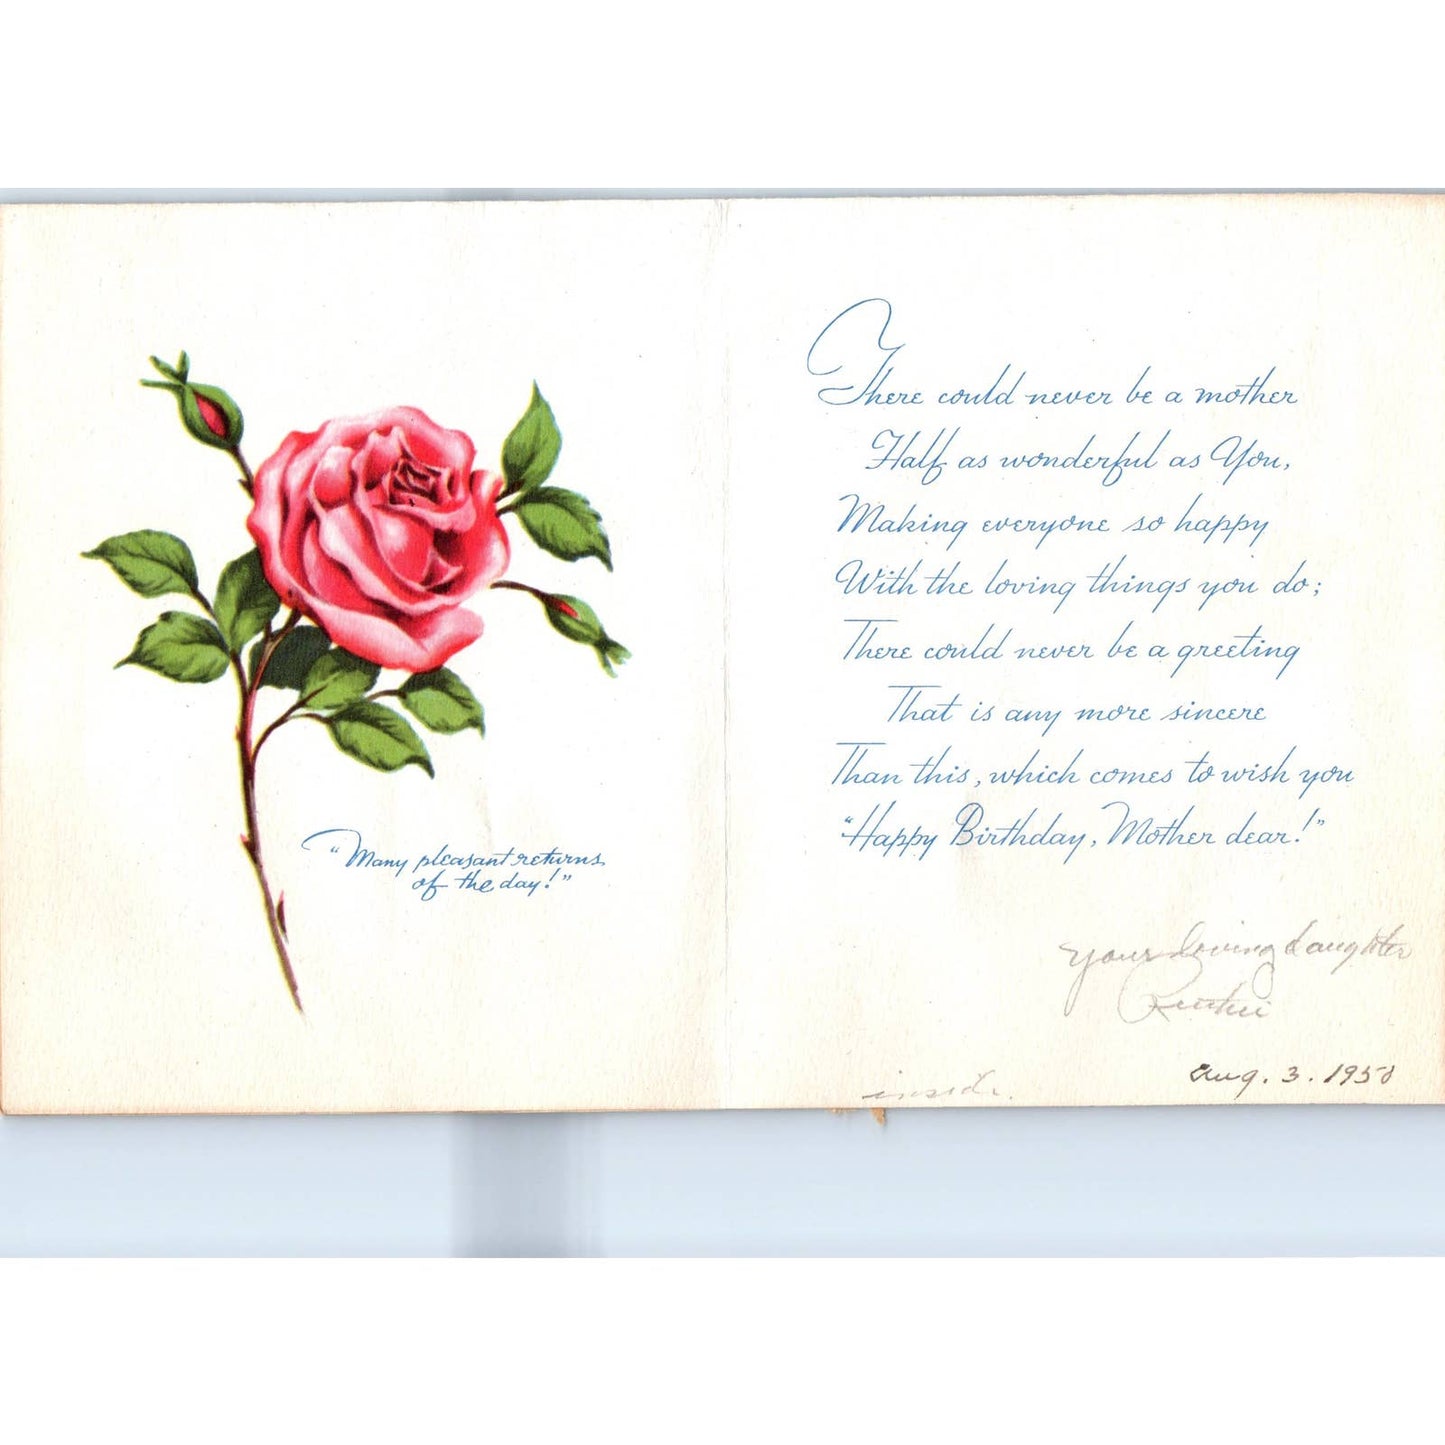 "Many pleasant returns
of the day!"
There could never be a mother
Half as wonderful as You,
Making everyone so happy
With the loving things you do;
There could never be a greeting
That is any more sincere
Than this, which comes to wish you
"Happy Birthday, Mother dear!"
Your loving daughter
inside.
Aug. 3. 1950